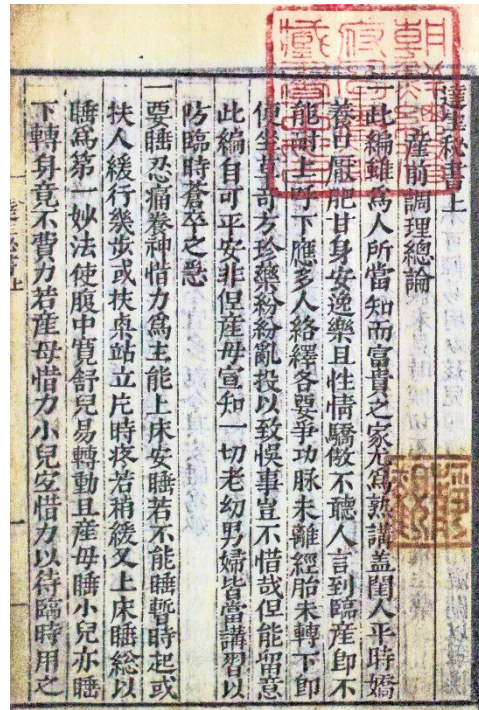 達生秘書上
產前調理總論
此編雖爲人所當知而富貴之家尤爲熟講盖閨人平時嬌
養厭肥甘身安逸樂且性情驕傲不聽人言到臨産即不
能耐上呼下應多人絡繹各要爭功脉未離經胎未轉下即
使坐草奇方珍藥紛紛亂投以致悞事豈不惜哉但能留意
此編自可平安非但産母宣知一切老幼男婦皆當講習以
防臨時蒼卒之愆
一要睡忍痛養神惜力爲主能上床安睡若不能睡暫時起或
扶人緩行幾步或扶桌站立片時疼若稍緩又上床睡総以
睡爲第一妙法使腹中寛舒兒易轉動且産母睡小兒亦睡
下轉身竟不費力若産母惜力小兒宐惜力以待臨時用之